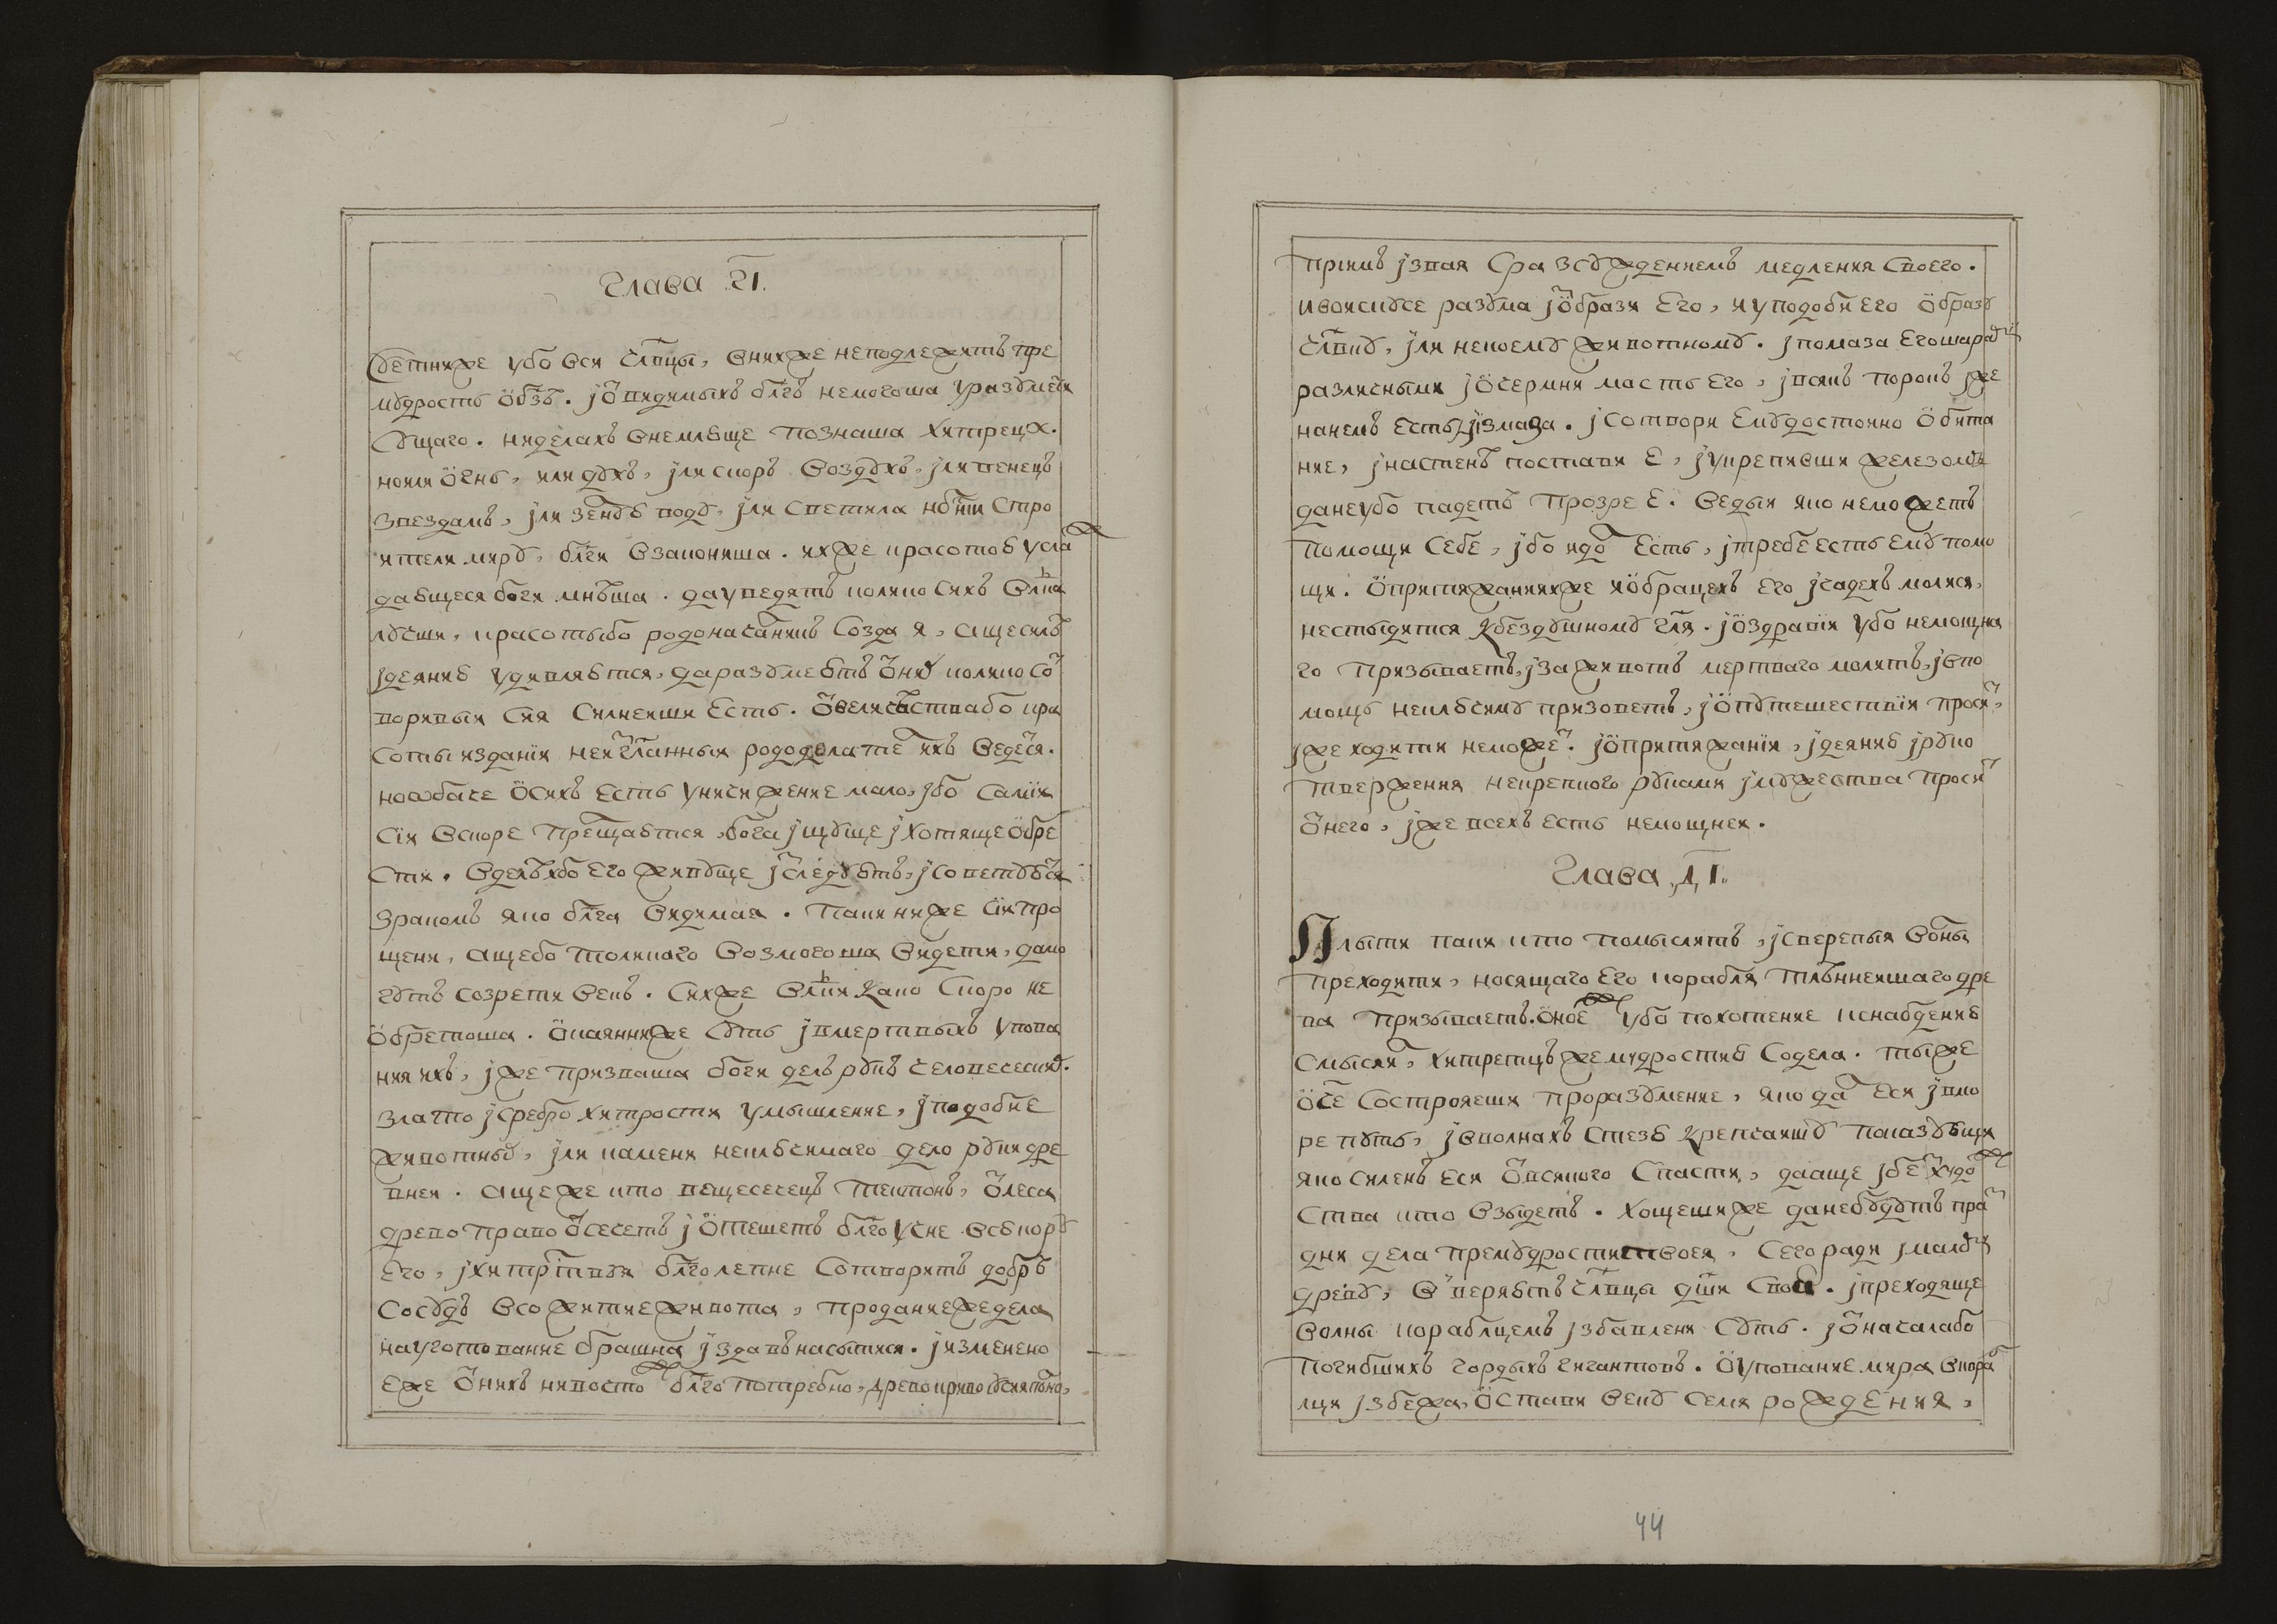 Глава г҃і.
Суетниже убо вси чл҃вцы, внихже неподлежитъ пре
мудрость о бз҃ѣ. j ѿвидимыхъ бл҃гъ немогоша уразумети
сущаго. ниделахъ внемлюще познаша хитреца.
ноили огнь, или духъ, jли скоръ воздухъ, jливенецъ
звездамъ, jли воду, jли светила нб҃ни стро
ители миру, бл҃ги взакониша. ихже красотою усла
дающеся боги мнѣша. даувѣдятъ колико сихъ вл҃ка
лучши, красотыбо родоначалникъ созда я, ащесилѣ
jдеянию удивляются, даразумеютъ ѿнихъ колико со
воривыи сия силнеиши есть. ѿвеличествабо кра
соты издания рододелатель ихъ ведеся.
нообаче осихъ есть уничижение мало, jбо самiи
сiи вскоре прещаются, бога jщуще jхотяще обре
сти. вделѣхбо его живуще jследуютъ, jсоветуются
зракомъ яко бл҃га видимая. паки ниже сiи про
щени, ащебо толикаго возмогоша видети, дамо
гутъ созрети векъ. сихже вл҃ки како скоро не
обретоша. окаянниже суть jвмертвыхъ упова
ния ихъ, jже призваша боги делъ рукъ человеческихъ.
злато jсребро хитрости умышление, jподобие
животныхъ, jли камени неключимаго дело руки дре
внеи. ащеже кто вещесечецъ тектонъ, ѿлеса
древо право ѿсечетъ jѿтешетъ бл҃гоучне всю кору
его, jхитрствуя бл҃голепне сотворитъ добръ
сосудъ всожитие живота, проданиежедела
науготование брашна jздавъ насытися. jизменено
еже ѿнихъ нивостож бл҃гопотребно, древо криво
приимъ jзвая сразсуждениемъ медления своего.
ивоискусе разума jѿобрази его, иуподоби его образу
чл҃вчу, jли некоему животному. jпомаза его шары
различными jочермни масть его, jвсякъ порокъ jже
нанемъ есть jзмаза. jсотвори емудостоино обита
ние, jнастенѣ постави е, jукрепивши железомъ
данеубо падетъ прозре е. ведыи яко неможетъ
помощи себе, jбо идол есть, jтребе есть ему помо
щи. опритяжанияхже иобрацехъ его jчадехъ молися,
нестыдится кбездушному гл҃я. jоздравiи убо немощна
го призываетъ, jза животъ мертваго молитъ, jвпо
мощь неключиму призоветъ, jопутешествiи проситъ,
jже ходити неможетъ. jопритяжанiи, jдеянию jруко
твержения некрепкого руками jмужества проситъ
ѿнего, jже всехъ есть немощнеи.
Глава д҃і.
Плыти паки кто помыслятъ, jсверепыя волны
преходити, носящаго его корабля тлѣннеишаго дре
ва призываетъ. оное убо похотение кснабдению
смысли, хитрецъ же мудростию содела. тыже
о҃че строяеши проразумение, яко дал еси jвмо
ре путь, jвволнахъ стезю крепчаишу показующи
яко силенъ еси ѿвсякого спасти, дааще jбез художе
ства кто взыдетъ. хощешиже данебудутъ пра
дни дела премудрости твоея. сего ради jмалу
древу, веряютъ чл҃вцы дш҃и своя. jпреходяще
волны кораблцемъ jзбавлени суть. jѿначалабо
погибшихъ гордыхъ гигантовъ. оупование мира вкораб
лци jзбежа, остави веку семя рождения,
44